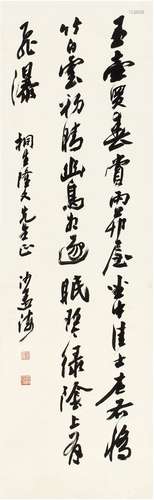 玉壶买春赏雨茆屋坐中佳士左右修
竹白云初晴幽鸟相逐眠琴绿阴上有
飞瀑
桐生隆久先生正
沙孟海